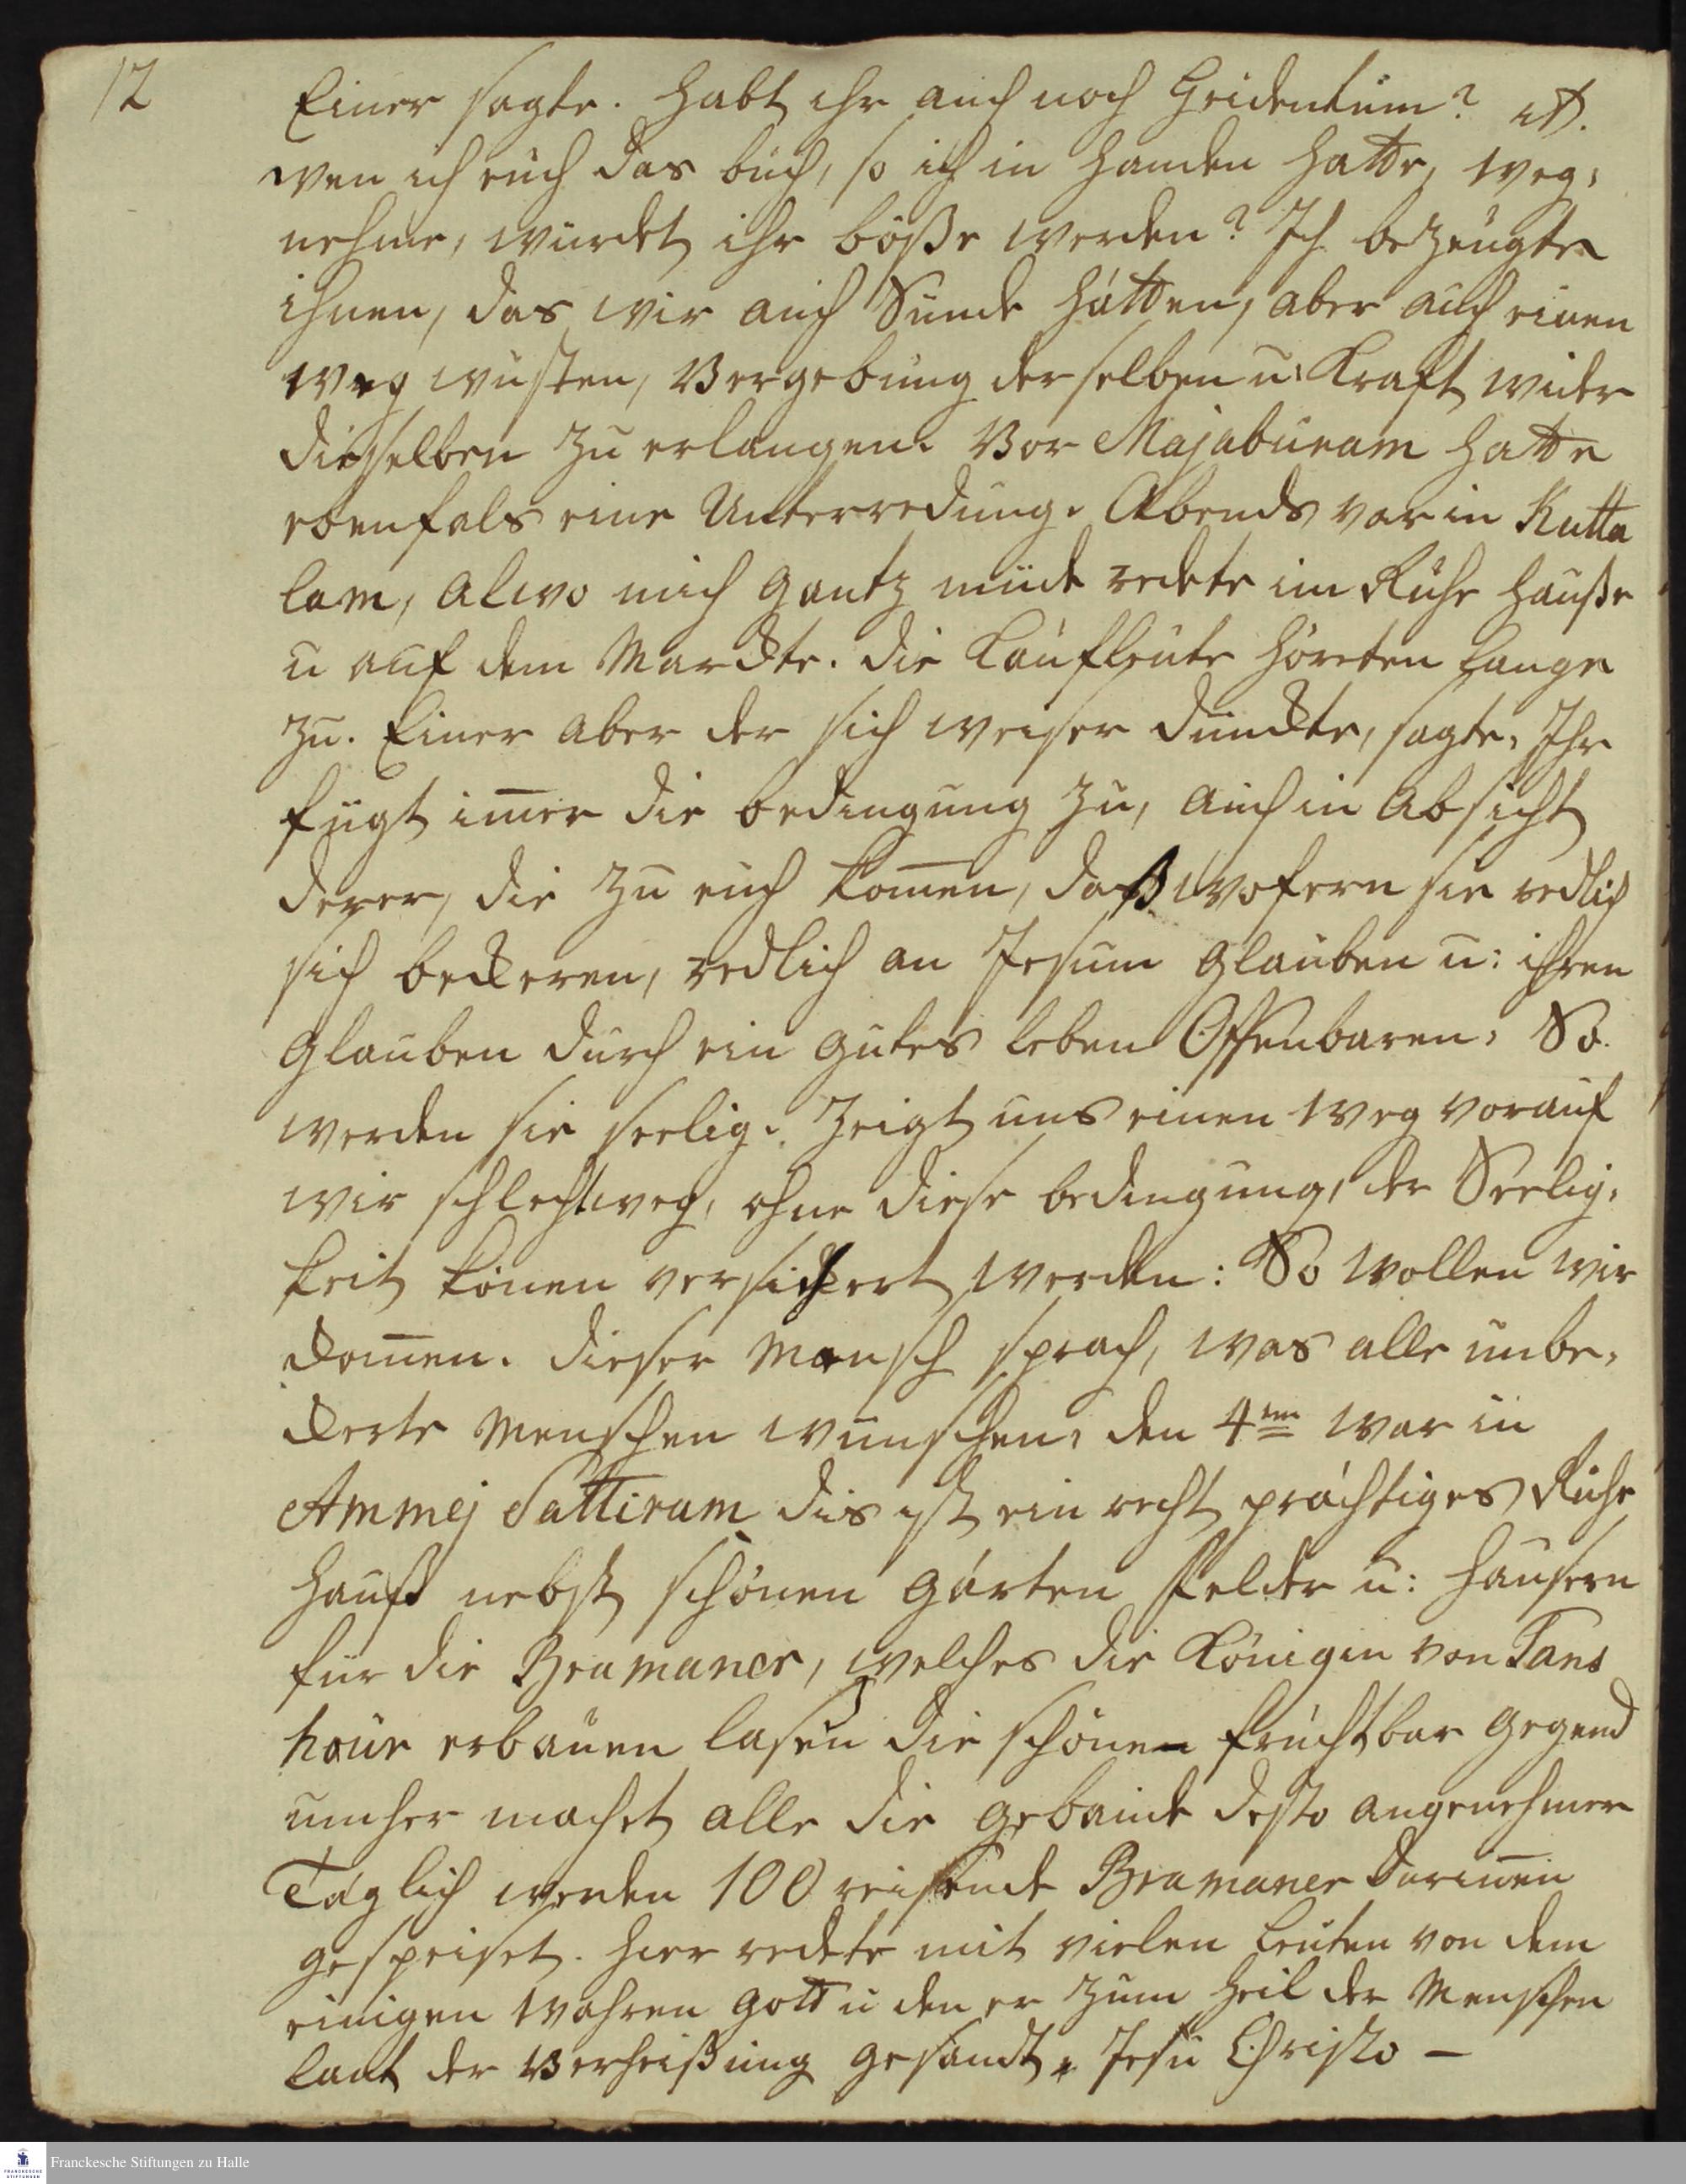 12
Einer sagte. Habt ihr auch noch Heidentum? it.
wen ich euch das buch, so ich in Handen hatte, weg,
nehme, würdet ihr böße werden? Ich bezeugte
ihnen, das wir auch Sünde hätten, aber auch einen
Weg wüsten, Vergebung derselben u: Kraft wider
dieselben zu erlangen. Vor Majaburam hatte
ebenfals eine Unterredung. Abends war in Kutta
lam, alwo mich gantz müde redete im Ruhe Hauße
u auf dem Marckte. die Kaufleute höreten lange
zu. Einer aber der sich weiser dünckte, sagte, Ihr
fügt imer die bedingung zu, auch in Absicht
derer, die zu euch komen, daß wofern sie redlich
sich bekeren, redlich an Jesum glauben u: ihren
Glauben durch ein gutes leben Offenbaren, So
werden sie seelig. Zeigt uns einen Weg vorauf
wir schlechtweg, ohne diese bedingung, der Seelig,
keit könen versichert werden: So wollen wir
komen. Dieser Mensch sprach, was alle unbe,
kerte Menschen wünschen, den 4ten war in
Ammej Sattiram dis ist ein recht prächtiges Ruhe
Hauß nebst schönen Gärten Felder u: Hausern
für die Bramaner, welches die Königin von Tans
hour erbauen lasen die schöne fruchtbar Gegend
umher machet alle die gebäude desto angenehmer
Täglich werden 100 reisende Bramaner darinen
gespeiset. Hier redete mit vielen Leuten von dem
einigen wahren Gott u den er zum Heil der Menschen
laut der Verheißung gesandt, Jesu Christo –
Franckesche Stiftungen zu Halle
FRANCKESCHE
STIFTUNGEN